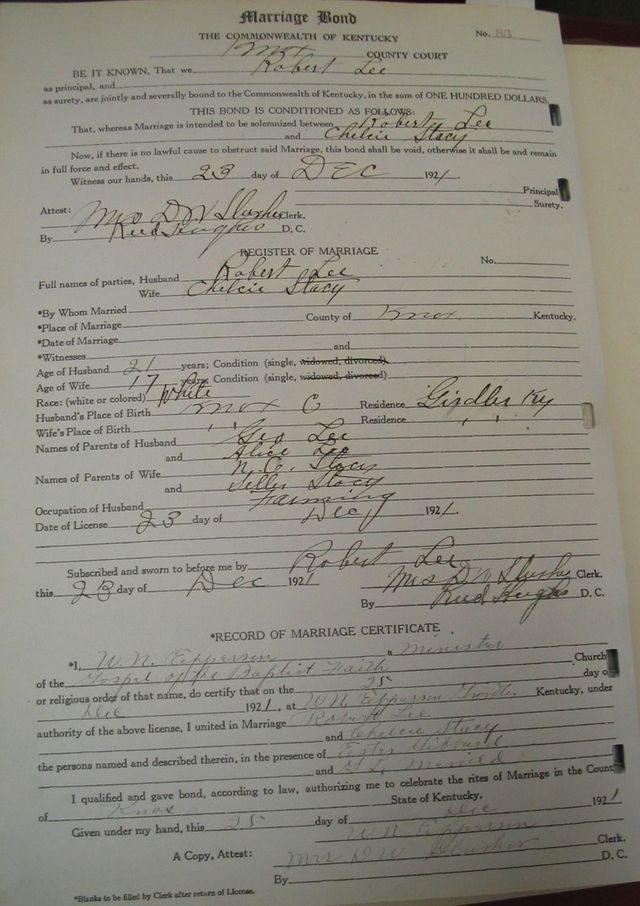 Marriage Bond
THE COMMONWEALTH OF KENTUCKY
No. 83
Knox COUNTY COURT
BE IT KNOWN, That we Robert Lee
as principal, and
as surety, are jointly and severally bound to the Commonwealth of Kentucky, in the sum of ONE HUNDRED DOLLARS.
THIS BOND IS CONDITIONED AS FOLLOWS:
That, whereas Marriage is intended to be solemnized between Robert Lee
and Chelcie Stacy
Now, if there is no lawful cause to obstruct said Marriage, this bond shall be void, otherwise it shall be and remain
in full force and effect.
Witness our hands, this 23 day of DEC 1921.
Principal
Surety.
Attest: Mrs D W Slusher Clerk.
By Reed Hughes D. C.
REGISTER OF MARRIAGE
Full names of parties, Husband Robert Lee No.
Wife Chelcie Stacy
*By Whom Married
*Place of Marriage County of Knox Kentucky.
*Date of Marriage
*Witnesses and
Age of Husband 21 years; Condition (single, widowed, divorced)
Age of Wife 17 years; Condition (single, widowed, divorced)
Race: (white or colored) White
Husband's Place of Birth Knox C Residence Girdler Ky
Wife's Place of Birth " " Residence " "
Names of Parents of Husband Geo Lee
and Alice Lee
Names of Parents of Wife N. C. Stacy
and Stacy
Occupation of Husband Farming
Date of License 23 day of Dec 1921.
Subscribed and sworn to before me by Robert Lee
this 23 day of Dec 1921 Mrs D W Slusher Clerk.
By Reed Hughes D. C.
*RECORD OF MARRIAGE CERTIFICATE
*I, W. N. Epperson a minister
of the Gospel of the Baptist Faith Church
or religious order of that name, do certify that on the 25 day o
Dec 1921, at W N Epperson Girdler Kentucky, under
authority of the above license, I united in Marriage Robert Lee
and Chelcie Stacy
the persons named and described therein, in the presence of
and
I qualified and gave bond, according to law, authorizing me to celebrate the rites of Marriage in the Count
of Knox State of Kentucky.
Given under my hand, this 25 day of Dec 1921
W N Epperson
A Copy, Attest: Mrs D W Slusher Clerk.
By D. C.
*Blanks to be filled by Clerk after return of License.